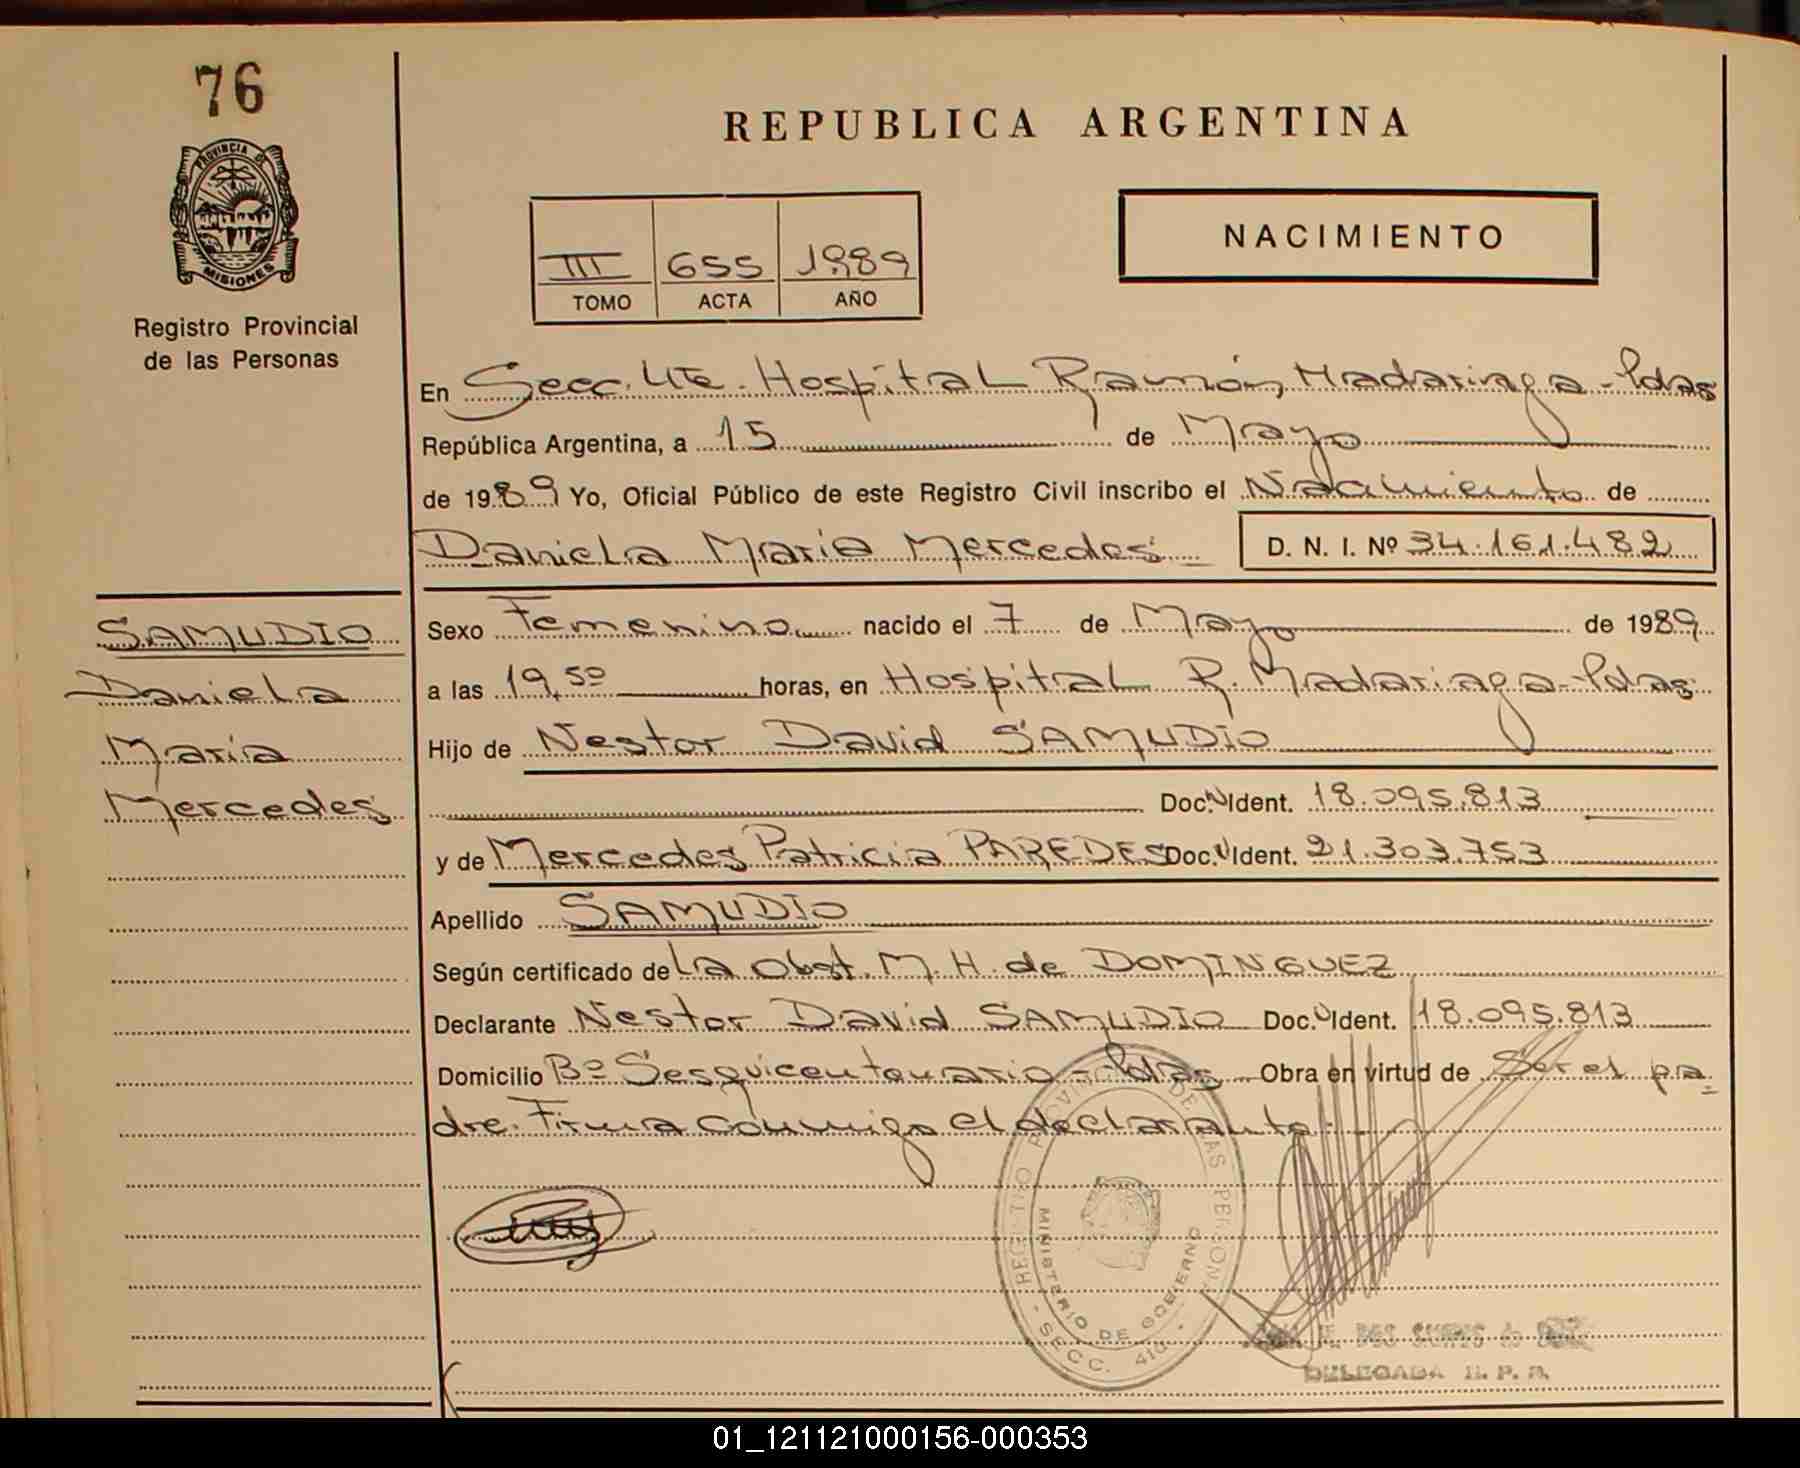 76
PROVINCIA DE
MISIONES
Registro Provincial
de las Personas
REPUBLICA ARGENTINA
III 655 1989
TOMO ACTA AÑO
NACIMIENTO
En Secc. 4ta. Hospital Ramón Madariaga - Pdas
República Argentina, a 15 de Mayo
de 1989 Yo, Oficial Público de este Registro Civil inscribo el Nacimiento de
Daniela Maria Mercedes D. N. I. Nº 34.161.482
SAMUDIO
Daniela
Maria
Mercedes
Sexo Femenino nacido el 7 de Mayo de 1989
a las 19,50 horas, en Hospital R. Madariaga - Pdas
Hijo de Nestor David SAMUDIO
Doc. Ident. 18.095.813
y de Mercedes Patricia PAREDES Doc. Ident. 21.303.753
Apellido SAMUDIO
Según certificado de La Obst. M. H. de DOMINGUEZ
Declarante Nestor David SAMUDIO Doc. Ident. 18.095.813
Domicilio Bº Sesquicentenario - Pdas Obra en virtud de Ser el pa
dre. Firma conmigo el declarante.
REGISTRO PROVINCIAL DE LAS PERSONAS
MINISTERIO DE GOBIERNO
- SECC. 4ta -
DELEGADA R. P. P.
01_121121000156-000353